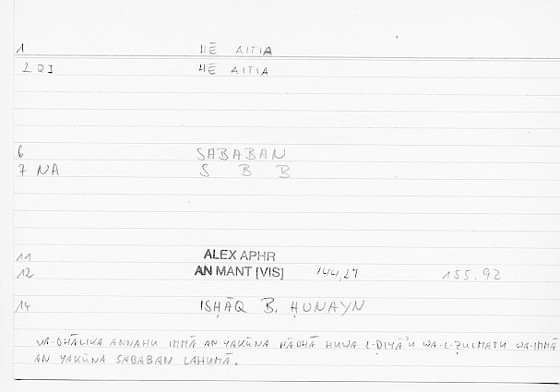 1 HĒ AITIA
2 QI HĒ AITIA
6 SABABAN
7 NA S B B
11 ALEX APHR
12 AN MANT [VIS] 144,27 155.92
14 ISḤĀQ B. ḤUNAYN
WA-DHĀLIKA ANNAHU IMMĀ AN YAKŪNA HĀDHĀ HUWA L-ḌIYĀʾU WA-L-ẒULMATU WA-IMMĀ
AN YAKŪNA SABABAN LAHUMĀ.